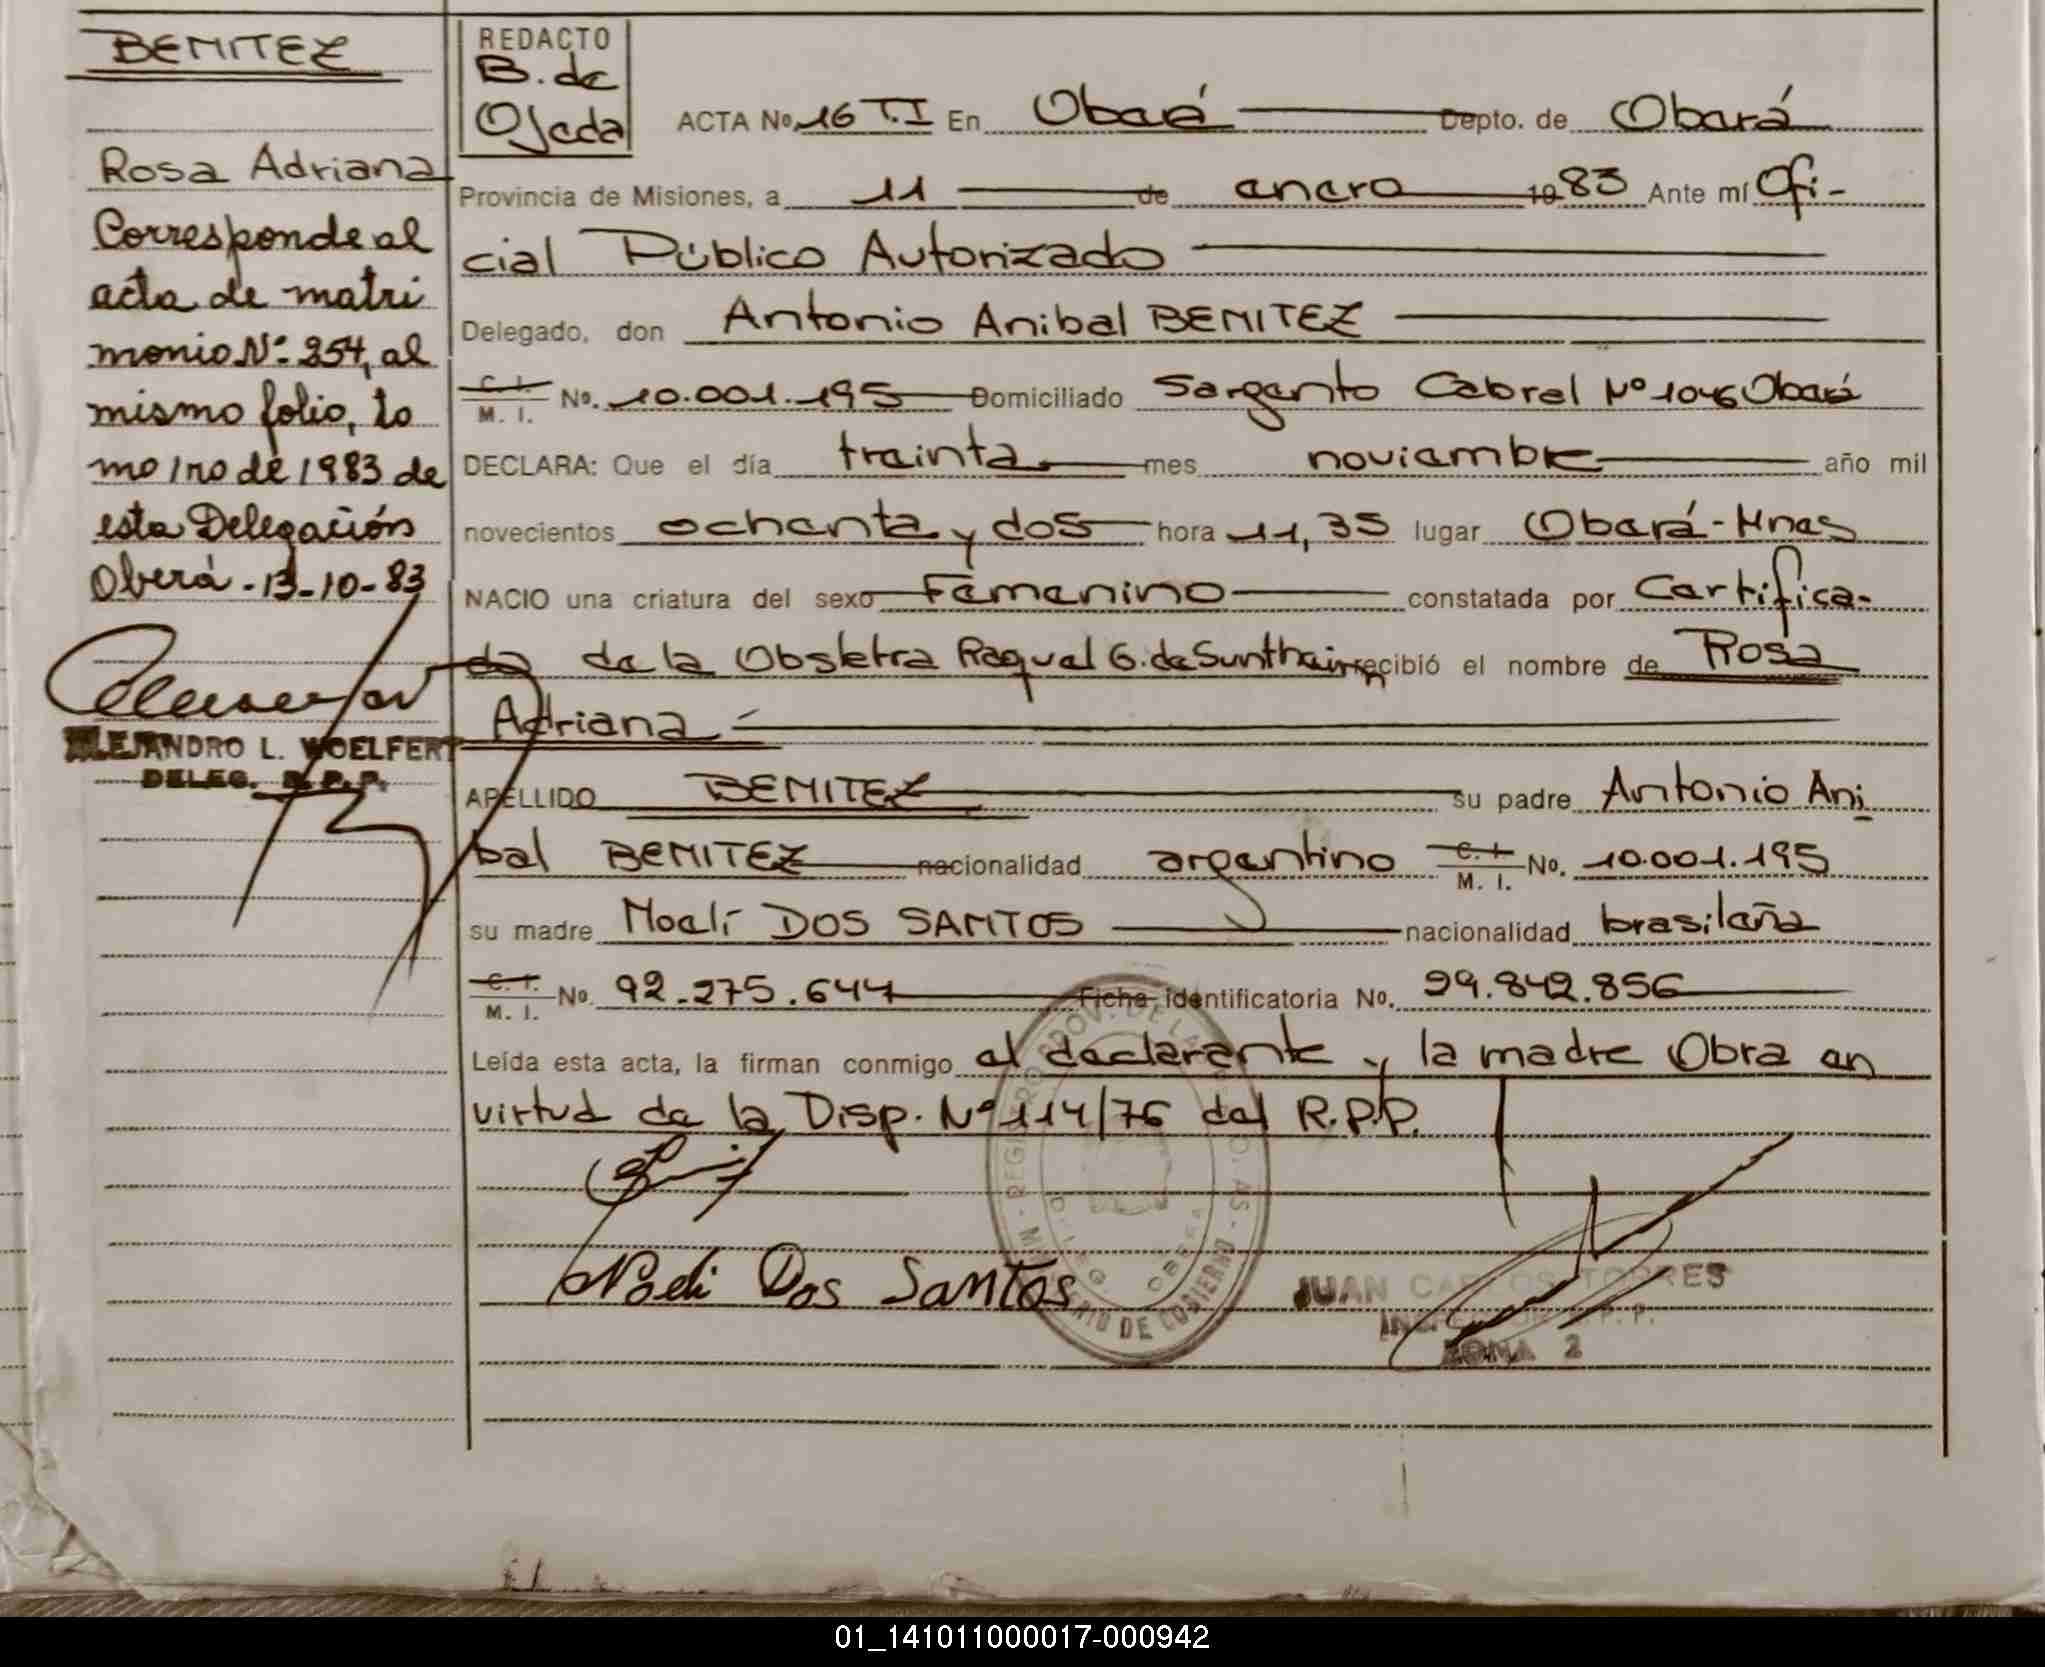 BENITEZ
Rosa Adriana
Corresponde al
acta de matri
monio Nº 254, al
mismo folio, to
mo 1ro de 1983 de
esta Delegación
Oberá - 13-10-83
ALEJANDRO L. WOELFERT
DELEG. R.P.P.
REDACTO
B. de
Ojeda
ACTA No. 16 T.I En Oberá Depto. de Oberá
Provincia de Misiones, a 11 de enero 1983 Ante mí Ofi-
cial Público Autorizado
Delegado, don Antonio Anibal BENITEZ
C. I. M. I. No. 10.001.195 Domiciliado Sargento Cabral Nº 1046 Oberá
DECLARA: Que el día treinta mes noviembre año mil
novecientos ochenta y dos hora 11,35 lugar Oberá-Mnes
NACIO una criatura del sexo Femenino constatada por Certifica-
do de la Obstetra Raquel G. de Sunthein recibió el nombre de Rosa
Adriana
APELLIDO BENITEZ su padre Antonio Ani
bal BENITEZ nacionalidad argentino C. I. M. I. No. 10.001.195
su madre Noelí DOS SANTOS nacionalidad brasileña
C. I. M. I. No. 92.275.644 Ficha identificatoria No. 29.842.856
Leída esta acta, la firman conmigo el declarante y la madre Obra en
virtud de la Disp. Nº 114/76 del R.P.P.
Noeli Dos Santos
JUAN CARLOS TORRES
INSPECTOR R.P.P.
ZONA 2
DELEG. OBERA
MINISTERIO DE GOBIERNO
01_141011000017-000942